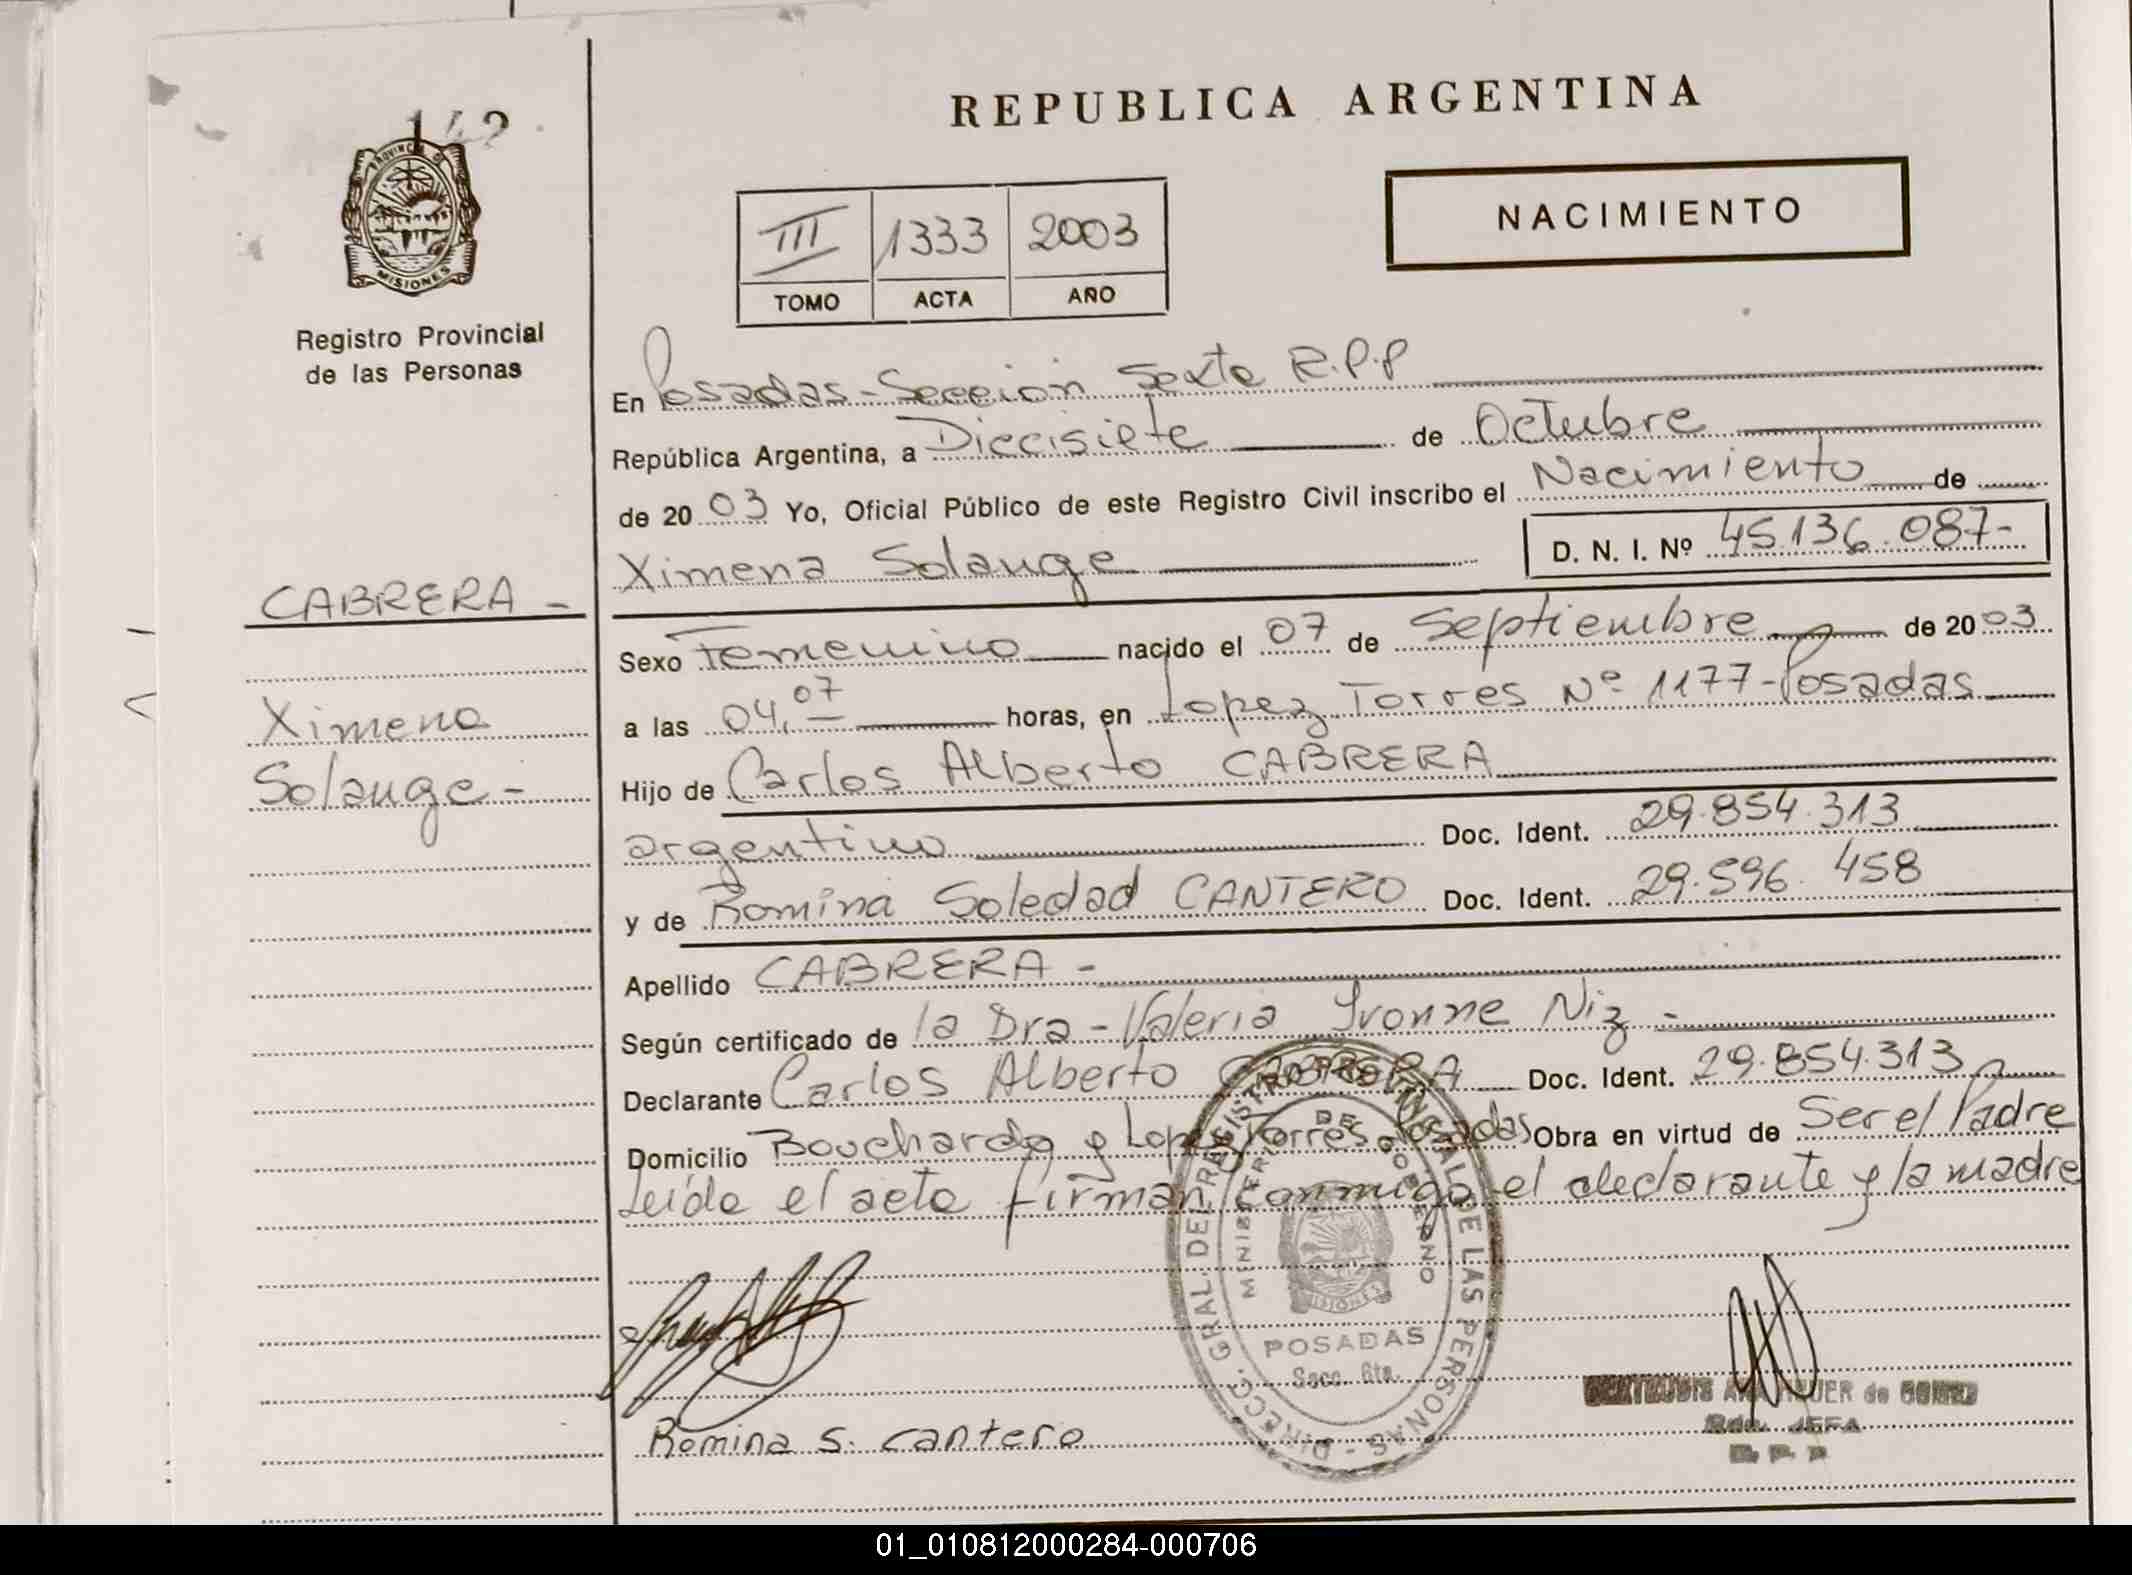 REPUBLICA ARGENTINA
142
PROVINCIA DE
MISIONES
Registro Provincial
de las Personas
III 1333 2003
TOMO ACTA AÑO
NACIMIENTO
En Posadas - Seccion Sexta R.P.P
República Argentina, a Diecisiete de Octubre
de 2003 Yo, Oficial Público de este Registro Civil inscribo el Nacimiento de
Ximena Solange D. N. I. Nº 45.136.087-
CABRERA -
Ximena
Solange -
Sexo Femenino nacido el 07 de Septiembre de 2003
a las 04,07 horas, en Lopez Torres Nº 1177 - Posadas
Hijo de Carlos Alberto CABRERA
argentino Doc. Ident. 29.854.313
y de Romina Soledad CANTERO Doc. Ident. 29.596.458
Apellido CABRERA -
Según certificado de la Dra - Valeria Ivonne Niz -
Declarante Carlos Alberto CABRERA Doc. Ident. 29.854.313
Domicilio Bouchardo y Lopez Torres Posadas Obra en virtud de Ser el Padre
Leída el acta firman conmigo el declarante y la madre
DIRECC. GRAL. DEL REGISTRO PROVINCIAL DE LAS PERSONAS -
MINISTERIO DE GOBIERNO
MISIONES
POSADAS
Secc. 6ta.
Romina S. Cantero
de GOMEZ
JEFA
R. P. P
01_010812000284-000706